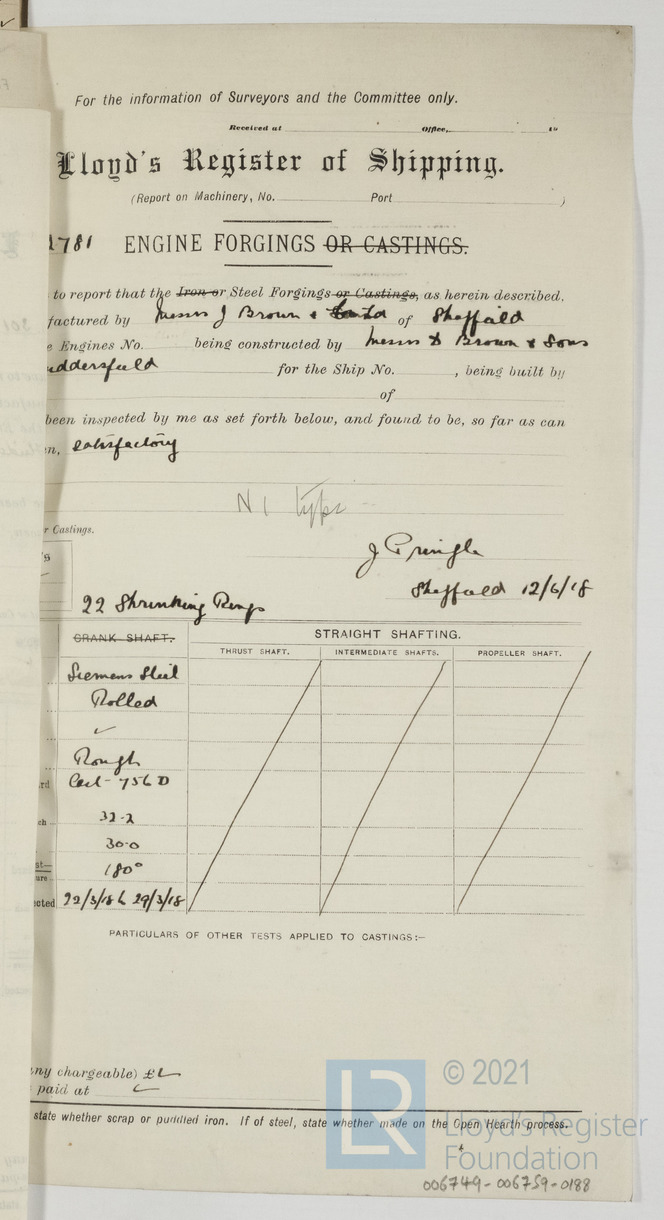 For the information of Surveyors and the Committee only.
Received at Office, 19
Lloyd's Register of Shipping.
(Report on Machinery, No. Port )
1781 ENGINE FORGINGS OR CASTINGS.
to report that the Iron or Steel Forgings or Castings, as herein described,
factured by Messrs J Brown & Co Ltd of Sheffield
e Engines No. being constructed by Messrs D Brown & Sons
uddersfield for the Ship No. , being built by
of
been inspected by me as set forth below, and found to be, so far as can
n, satisfactory
N 1 type
r Castings.
's
J Pringle
Sheffield 12/6/18
22 Shrinking Rings
CRANK SHAFT. STRAIGHT SHAFTING.
THRUST SHAFT. INTERMEDIATE SHAFTS. PROPELLER SHAFT.
Siemens Steel
Rolled
✓
Rough
rd Cast- 756 D
ch 32-2
30-0
st— 180°
ure
ected 22/3/18 & 29/3/18
PARTICULARS OF OTHER TESTS APPLIED TO CASTINGS:—
any chargeable) £
paid at
state whether scrap or puddled iron. If of steel, state whether made on the Open Hearth process.
LR
© 2021
Lloyd's Register
Foundation
006749-006759-0188